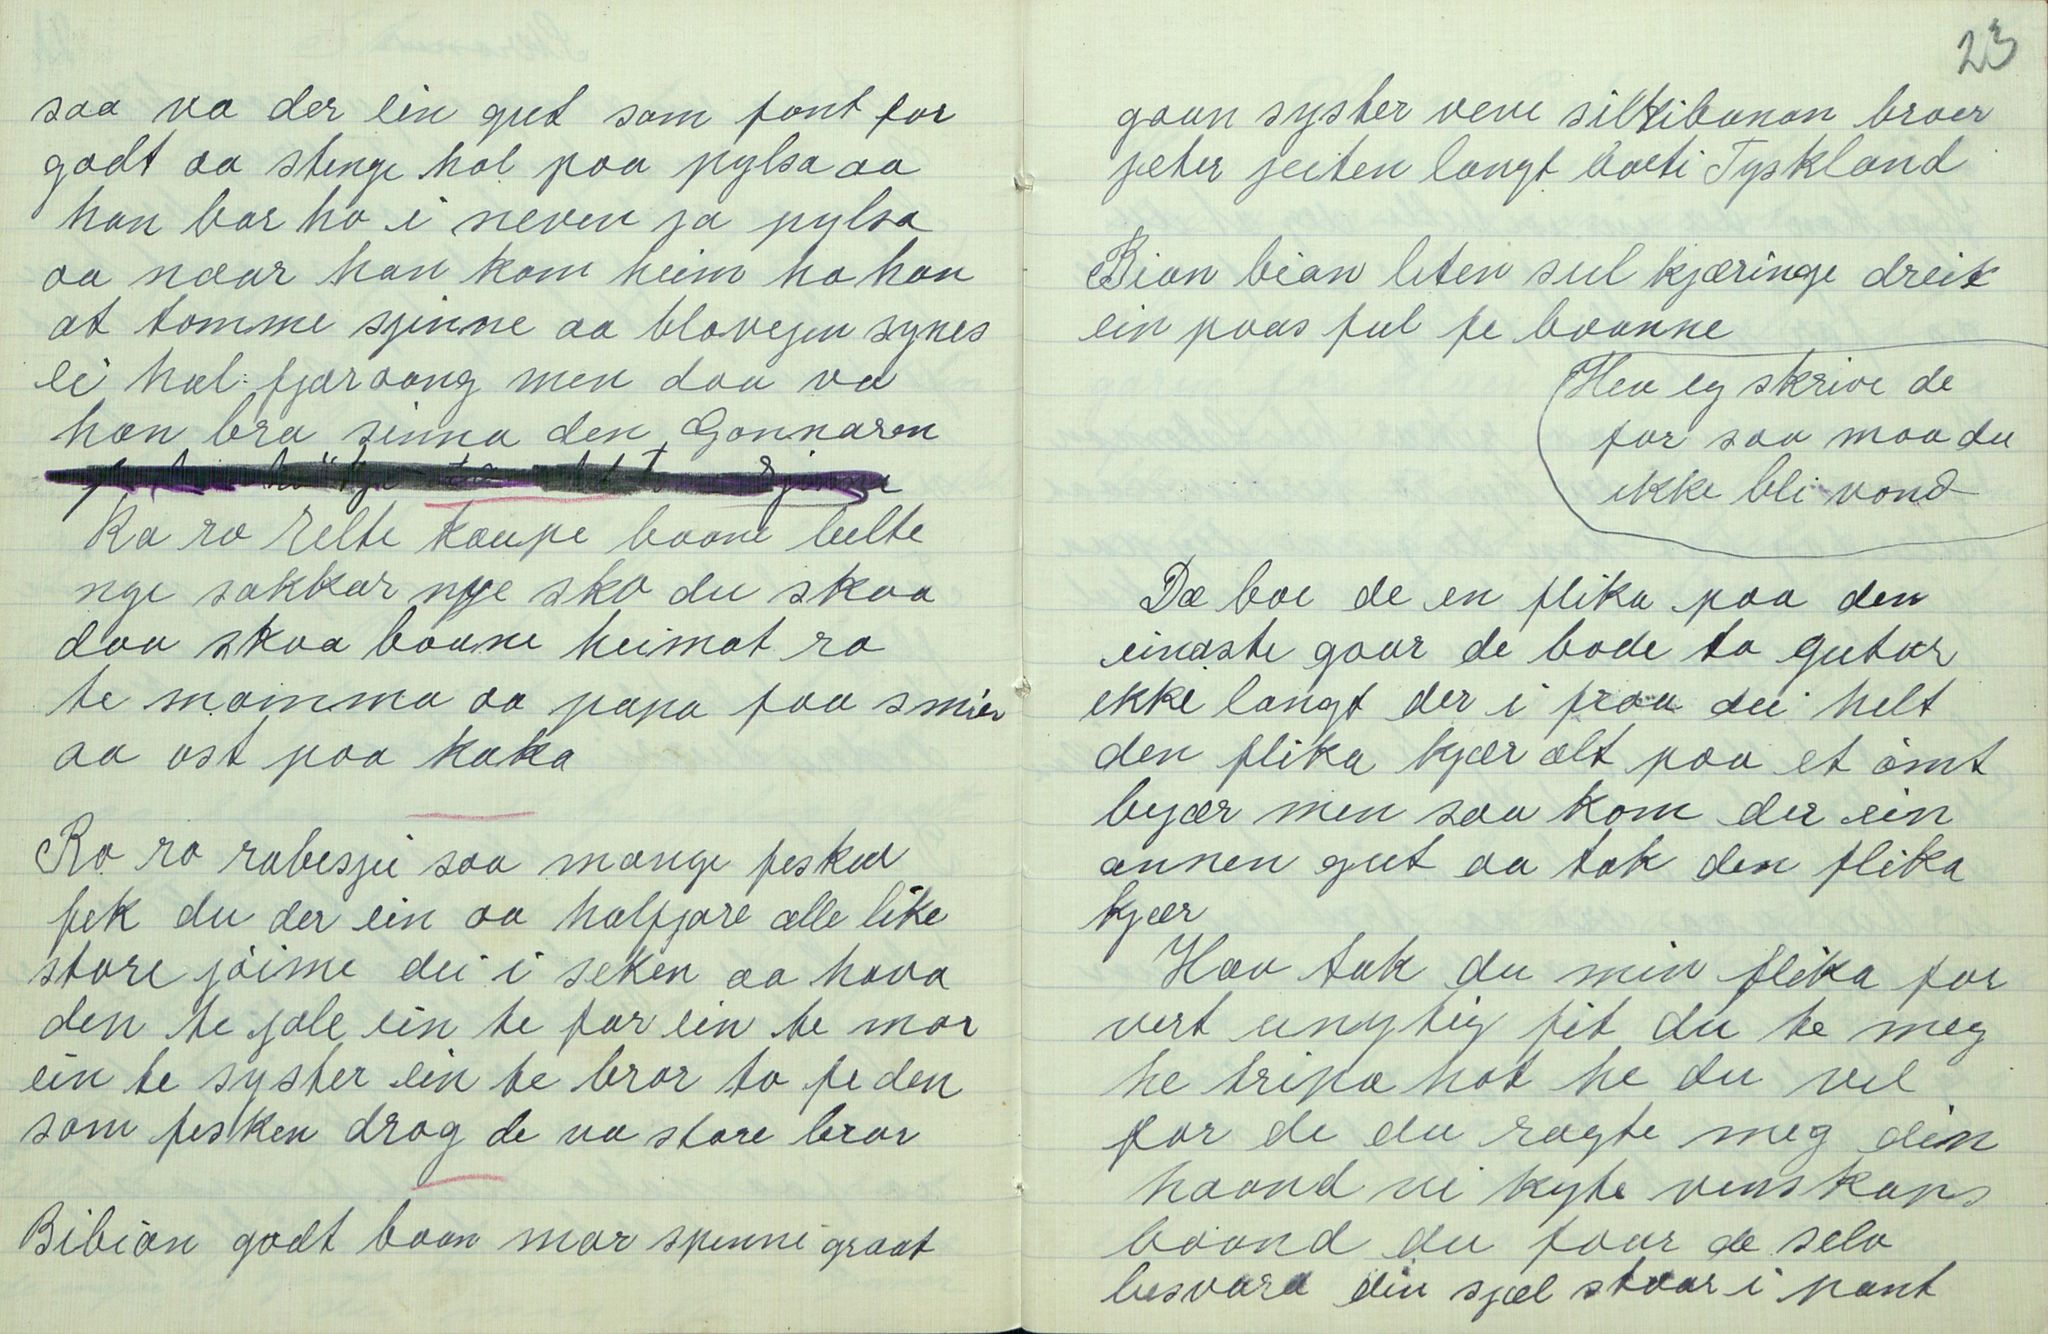 saa va der ein gut som font for
godt aa stenge hol paa pylsa aa
han bar ho i neven ja pylsa
aa naar han kom heim ha han
at tomme sjinne aa blavejen synes
ei hal fjæraang men daa va
han bra sinna den Gonnaren
Ra ro relte kaupe baane belte
nye sokkar nye sko du skaa
daa skaa baane heimat ro
te mamma aa papa faa smier
aa ost paa kaka
Ro ro rabesjei saa mange feskad
fek du der ein aa halfjore ælle like
store jóime dei i seken aa hava
den te jole ein te far ein te mor
ein te syster ein te bror to te den
som fesken drog de va store bror
Bibian godt baan mor spinne graat
23
gaan syster veve silkibanan broer
jeter jeiten langt borti Tyskland
Bian bian leten sul kjæringe dreit
ein paas ful fe baanne
Hev eg skrive de
for saa maa du
ikke bli vond
Dæ boe de en flika paa den
eindste gaar de bode to gutar
ikke langt der i fraa dei helt
den flika kjær alt paa et ómt
bejær men saa kom der ein
annen gut aa tok den flika
kjær
Hav tak du min flika for
vert unytig fit du te meg
he tripa hot he du vel
for de du ragte meg din
haand vi kyte venskaps
baand du faar de selv
besvara din sjæl staar i pant